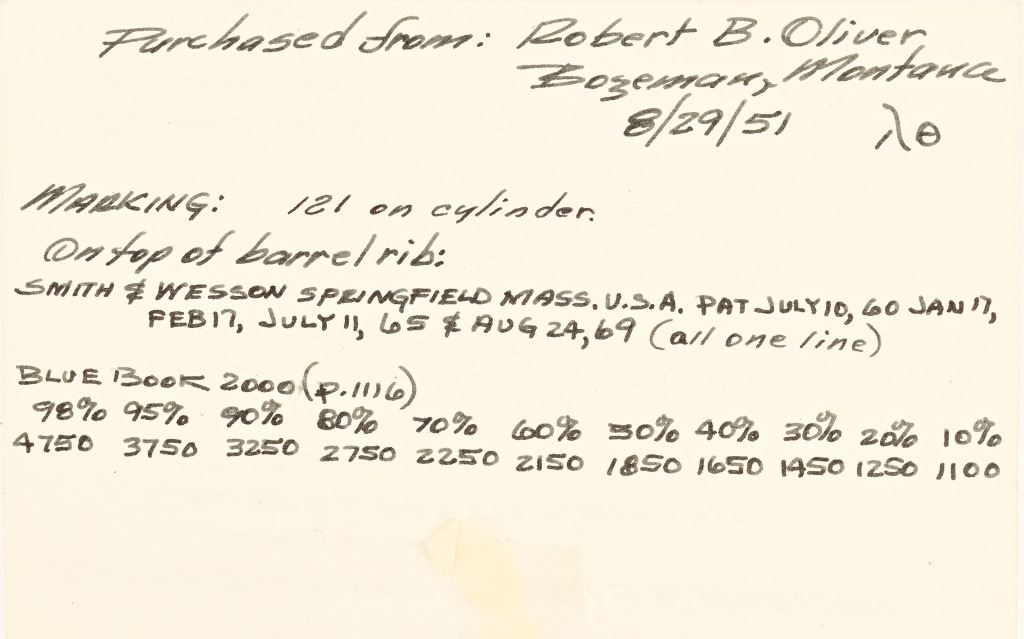 Purchased from: Robert B. Oliver
Bozeman, Montana
8/29/51 λθ
MARKING: 121 on cylinder.
On top of barrel rib:
SMITH & WESSON SPRINGFIELD MASS. U.S.A. PAT JULY 10, 60 JAN 17,
FEB 17, JULY 11, 65 & AUG 24, 69 (all one line)
BLUE BOOK 2000 (p. 1116)
98% 95% 90% 80% 70% 60% 50% 40% 30% 20% 10%
4750 3750 3250 2750 2250 2150 1850 1650 1450 1250 1100